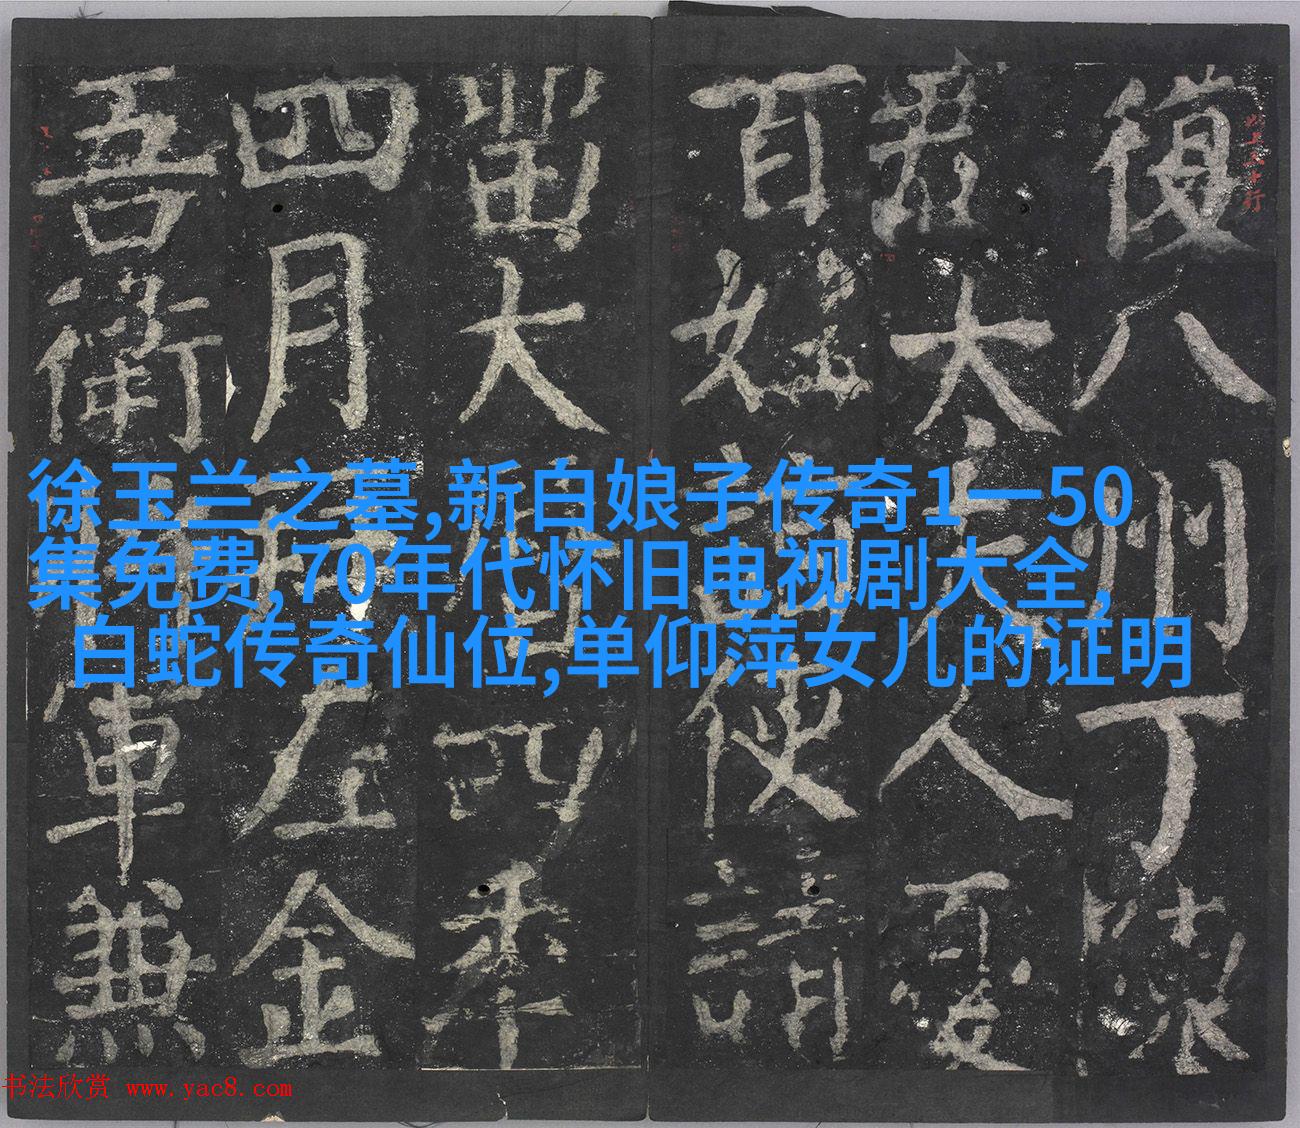 徐玉兰之墓,新白娘子传奇1一50
集免费,70年代怀旧电视剧大全,
白蛇传奇仙位,单仰萍女儿的证明
復八州丁陳
太夫人憂
百姓使請
留大四年
四月左金
吾衛軍兼
书法欣赏 www.yac8.com